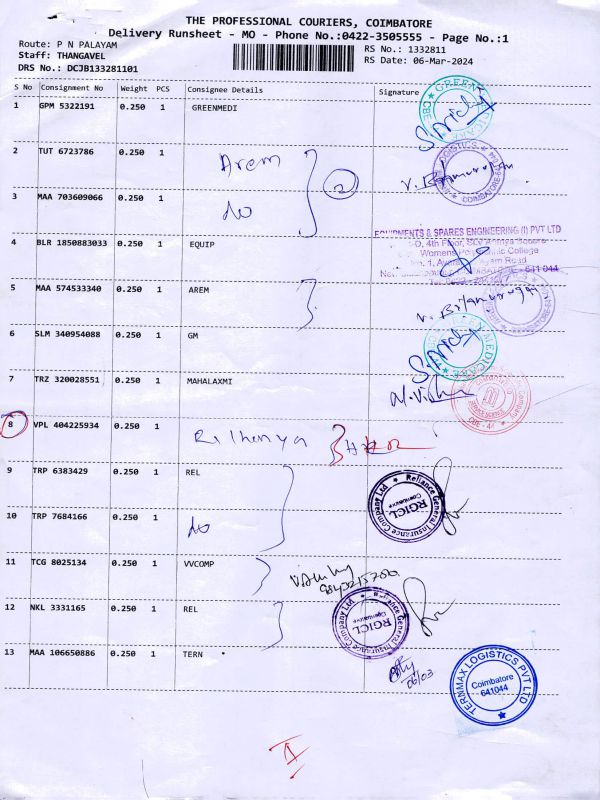 THE PROFESSIONAL COURIERS, COIMBATORE
Delivery Runsheet - MO - Phone No.:0422-3505555 - Page No.:1
Route: P N PALAYAM RS No.: 1332811
Staff: THANGAVEL RS Date: 06-Mar-2024
DRS No.: DCJB133281101
S No Consignment No Weight PCS Consignee Details Signature
1 GPM 5322191 0.250 1 GREENMEDI
2 TUT 6723786 0.250 1 Arem
2
3 MAA 703609066 0.250 1 do
EQUIPMENTS & SPARES ENGINEERING (I) PVT LTD
4 BLR 1850883033 0.250 1 EQUIP
4th Floor,
Womens Polytechnic College
COIMBATORE - 641 044
5 MAA 574533340 0.250 1 AREM
6 SLM 340954088 0.250 1 GM
7 TRZ 320028551 0.250 1 MAHALAXMI
8 VPL 404225934 0.250 1
9 TRP 6383429 0.250 1 REL
Reliance General Insurance Company Ltd
RGICL
Coimbatore
10 TRP 7684166 0.250 1 do
11 TCG 8025134 0.250 1 VVCOMP
12 NKL 3331165 0.250 1 REL
Reliance General Insurance Company Ltd
RGICL
Coimbatore
13 MAA 106650886 0.250 1 TERN
06/03
TERNMAX LOGISTICS PVT LTD
Coimbatore
641044